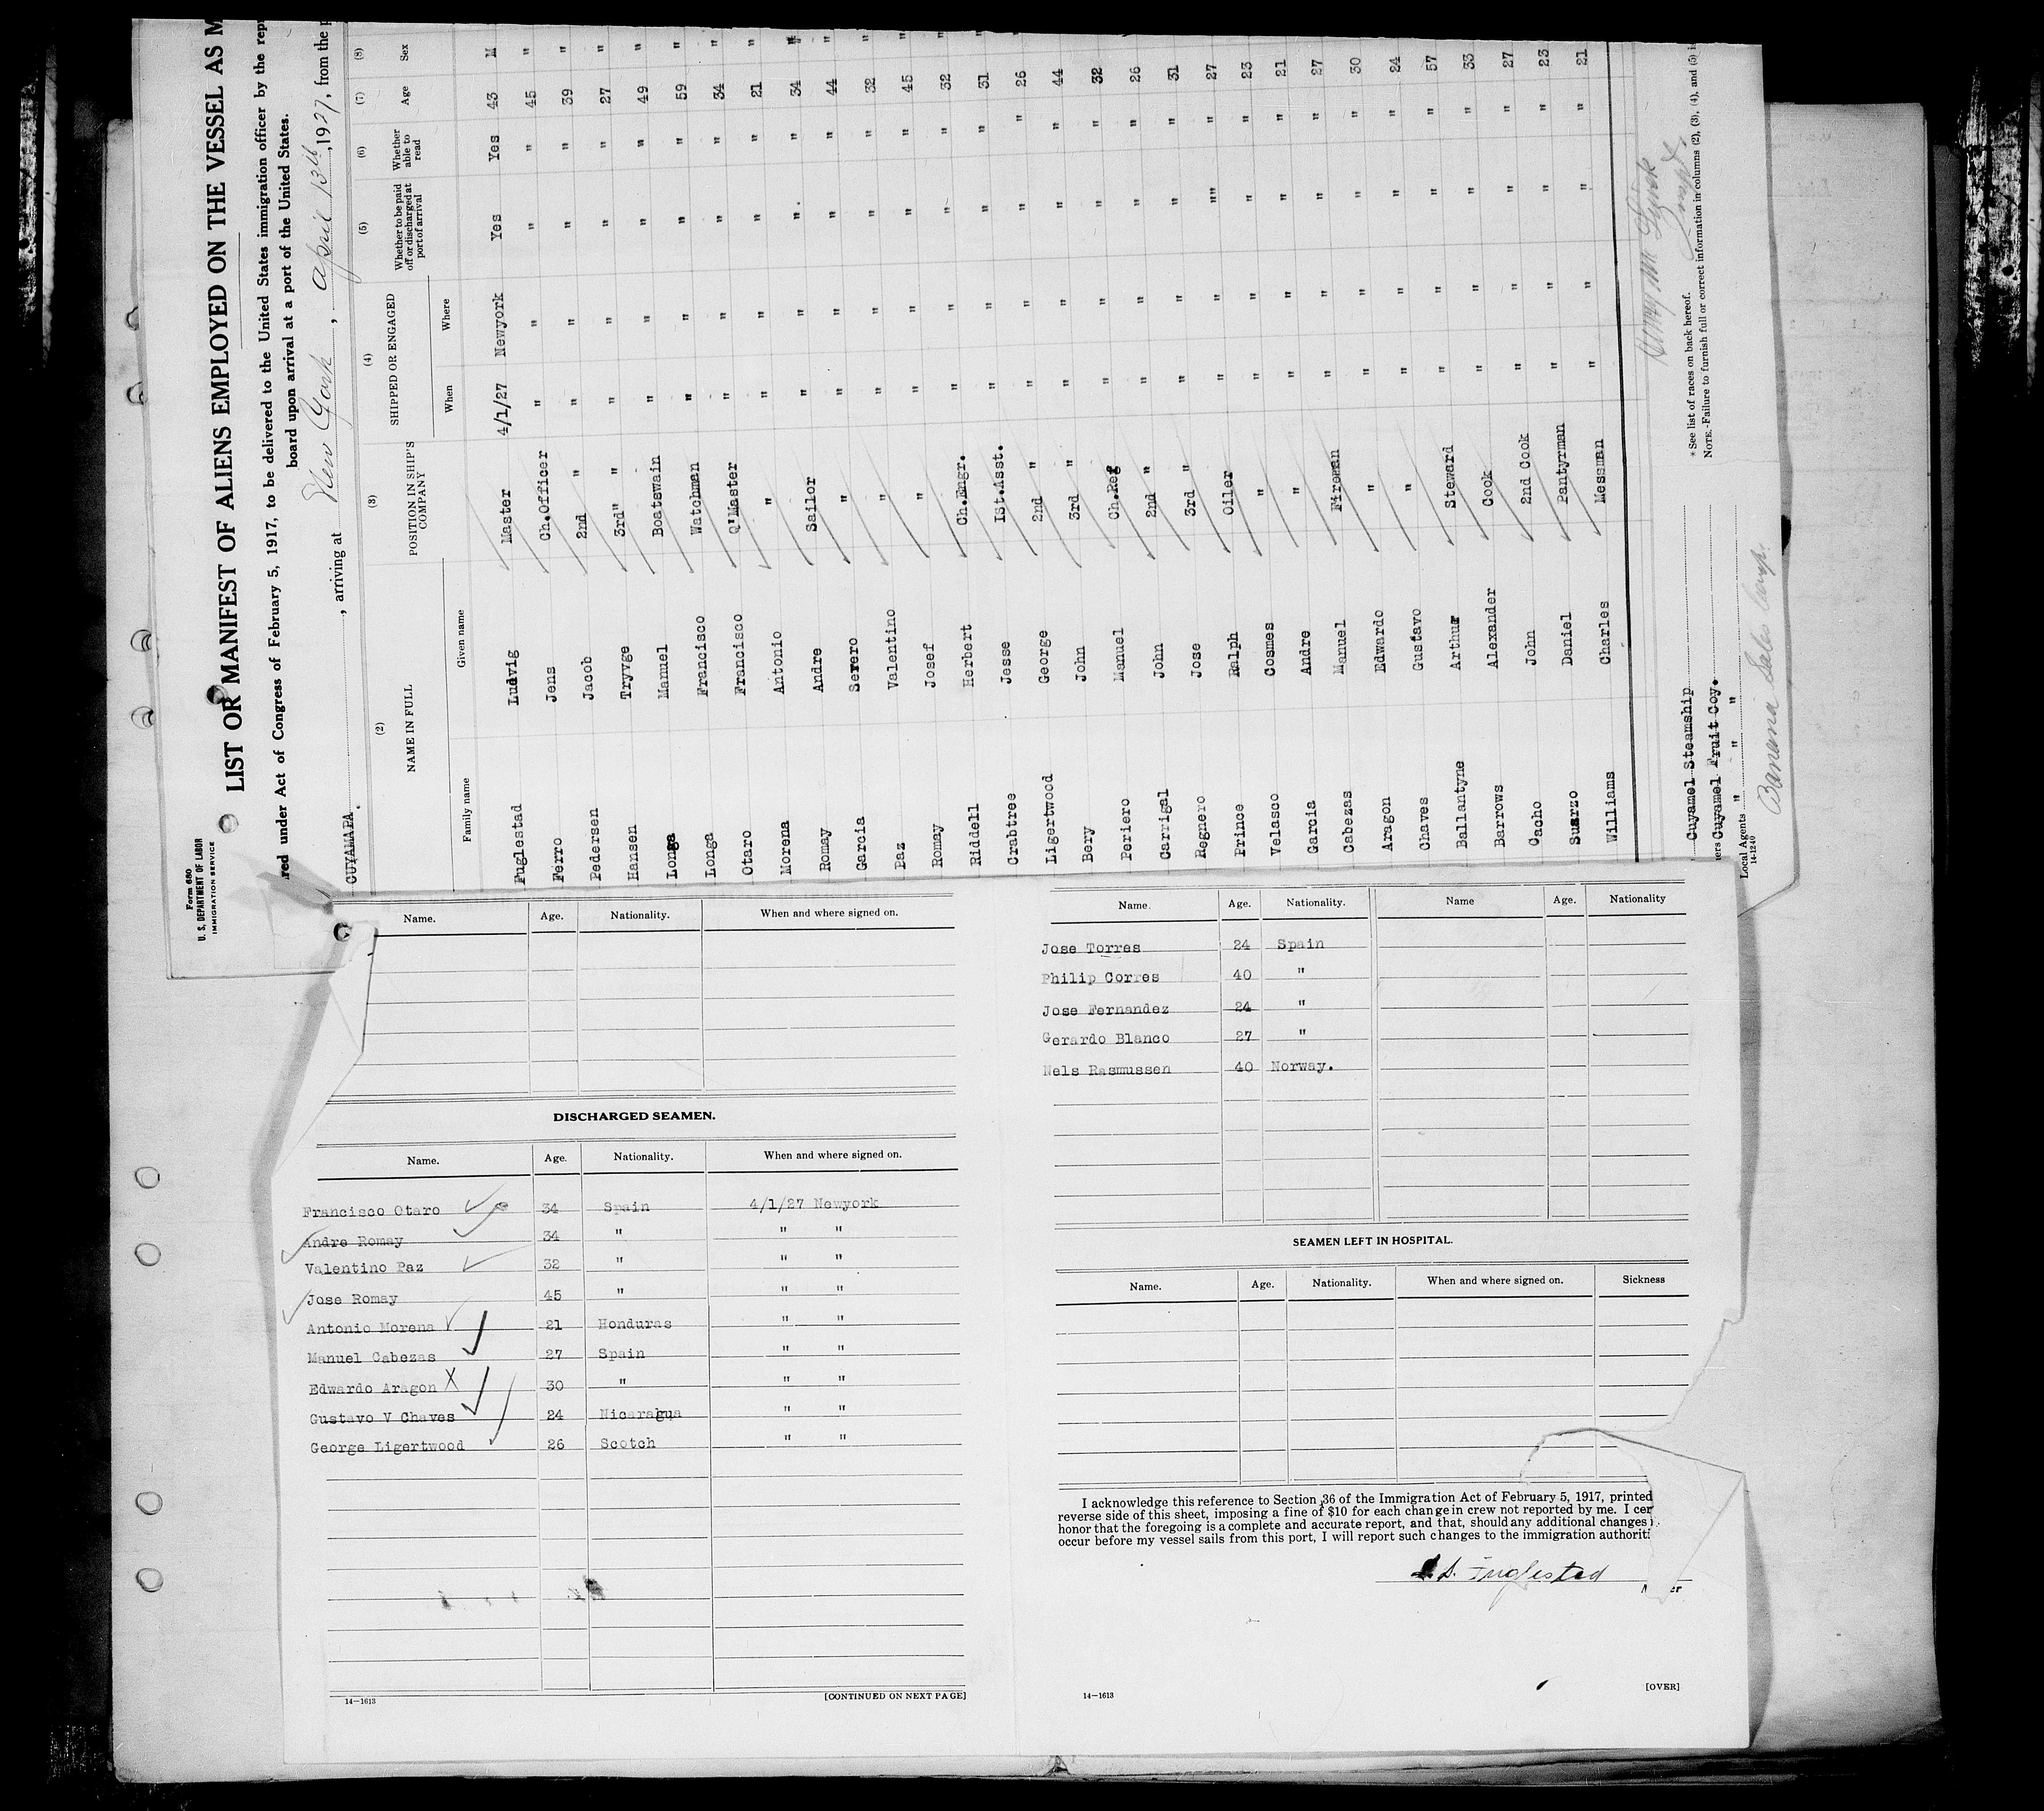 Form 680
U. S. DEPARTMENT OF LABOR
IMMIGRATION SERVICE
LIST OR MANIFEST OF ALIENS EMPLOYED ON THE VESSEL AS M
red under Act of Congress of February 5, 1917, to be delivered to the United States immigration officer by the repr
board upon arrival at a port of the United States.
CUYAMAPA. , arriving at New York , April 13th, 1927, from the p
(2) (3) (4) (5) (6) (7) (8)
NAME IN FULL POSITION IN SHIP'S COMPANY SHIPPED OR ENGAGED Whether to be paid off or discharged at port of arrival Whether able to read Age Sex
Family name Given name When Where
Fuglestad Ludvig Master 4/1/27 Newyork Yes Yes 43 M
Ferro Jens Ch.Officer " " " " 45 "
Pedersen Jacob 2nd " " " " " 39 "
Hansen Tryvge 3rd" " " " " " 27 "
Longa Manuel Boatswain " " " " 49 "
Longa Francisco Watchman " " " " 59 "
Otaro Francisco Q'Master " " " " 34 "
Morena Antonio " " " " " 21 "
Romay Andre Sailor " " " " 34 "
Garcia Severo " " " " " 44 "
Paz Valentino " " " " " 32 "
Romay Josef " " " " " 45 "
Riddell Herbert Ch.Engr. " " " " 32 "
Crabtree Jesse 1St.Asst. " " " " 31 "
Ligertwood George 2nd " " " " " 26 "
Bery John 3rd " " " " " 44
Periero Manuel Ch.Ref " " " " 32
Carrigal John 2nd " " " " " 26
Regnero Jose 3rd " " " " " 31
Prince Ralph Oiler " " "" " 27
Velasco Cosmes " " " " " 23
Garcia Andre " " " " " 21
Cabezas Manuel Fireman " " " " 27
Aragon Edwardo " " " " " 30
Chaves Gustavo " " " " " 24
Ballantyne Arthur Steward " " " " 57
Barrows Alexander Cook " " " " 33
Cacho John 2nd Cook " " " " 27
Suarzo Daniel Pantyrman " " " " 23
Williams Charles Messman " " " " 21
Cuyamel Steamship
ners Cuyamel Fruit Coy.
Local Agents " " "
14-1240
Banana Sales Corp.
*See list of races on back hereof.
NOTE.-Failure to furnish full or correct information in columns (2), (3), (4), and (5) i
Name. Age. Nationality. When and where signed on.
DISCHARGED SEAMEN.
Name. Age. Nationality. When and where signed on.
Francisco Otaro 34 Spain 4/1/27 Newyork
Andre Romay 34 " " "
Valentino Paz 32 " " "
Jose Romay 45 " " "
Antonio Morena 21 Honduras " "
Manuel Cabezas 27 Spain " "
Edwardo Aragon X 30 " " "
Gustavo V Chaves 24 Nicaragua " "
George Ligertwood 26 Scotch " "
14—1613 [CONTINUED ON NEXT PAGE]
Name. Age. Nationality. Name Age. Nationality
Jose Torres 24 Spain
Philip Corres 40 "
Jose Fernandez 24 "
Gerardo Blanco 27 "
Nels Rasmussen 40 Norway.
SEAMEN LEFT IN HOSPITAL.
Name. Age. Nationality. When and where signed on. Sickness
I acknowledge this reference to Section 36 of the Immigration Act of February 5, 1917, printed
reverse side of this sheet, imposing a fine of $10 for each change in crew not reported by me. I cer
honor that the foregoing is a complete and accurate report, and that, should any additional changes
occur before my vessel sails from this port, I will report such changes to the immigration authoriti
14—1613 [OVER]